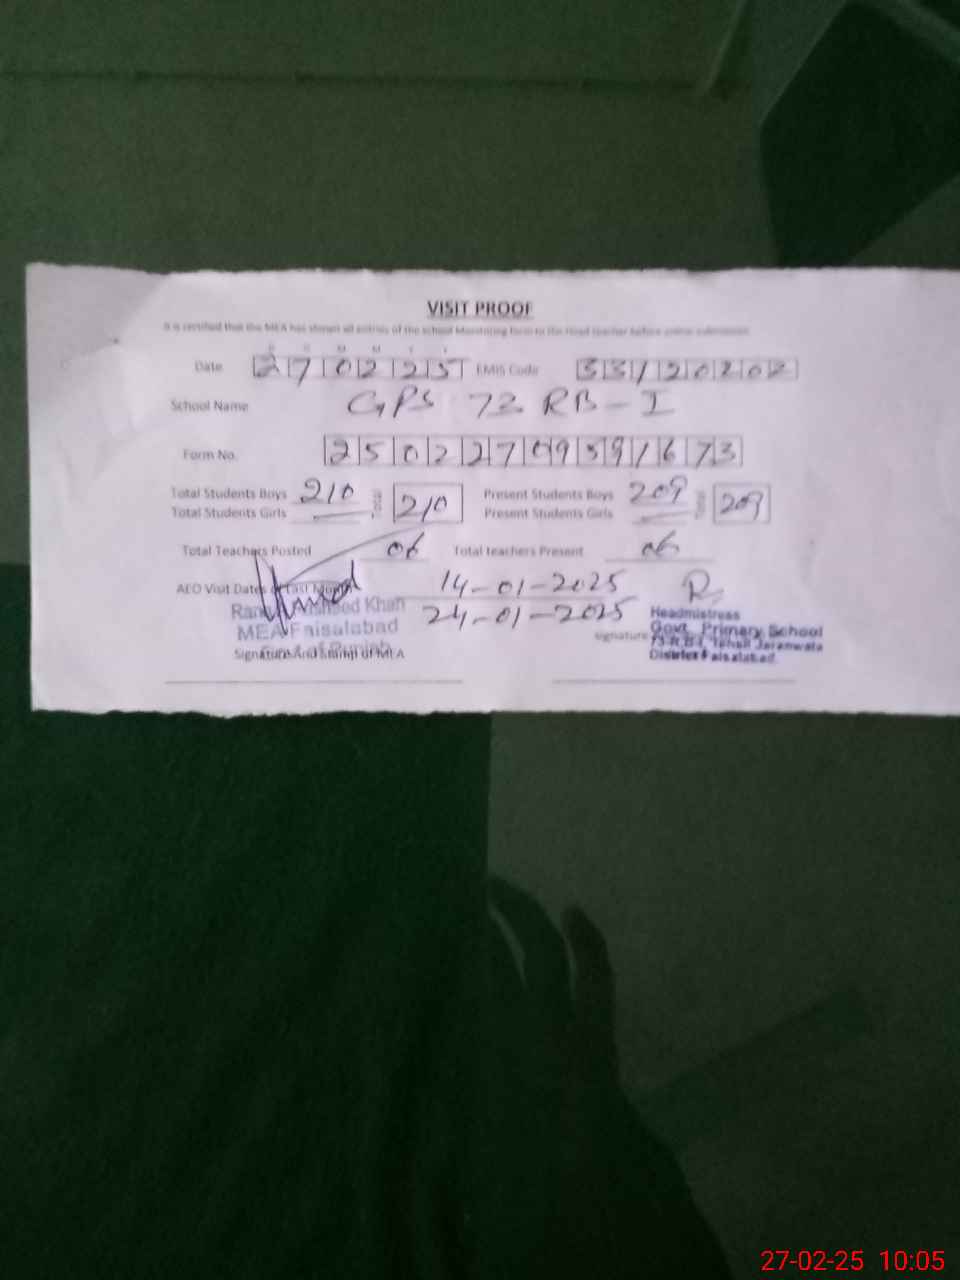 VISIT PROOF
It is certified that the MEA has shown all entries of the school Monitoring form to the Head teacher before online submission
Date 270225 EMIS Code 33120202
School Name GPS 73 RB-I
Form No. 25022709591673
Total Students Boys 210 Present Students Boys 209
Total Students Girls — Total 210 Present Students Girls — Total 209
Total Teachers Posted 06 Total teachers Present 06
AEO Visit Dates of Last Month 14-01-2025
24-01-2025
Rana Khan
MEA Faisalabad
Signature And Stamp of MEA
Signature
Headmistress
Govt. Primary School
73-R.B-I, Tehsil Jaranwala
District Faisalabad.
27-02-25 10:05